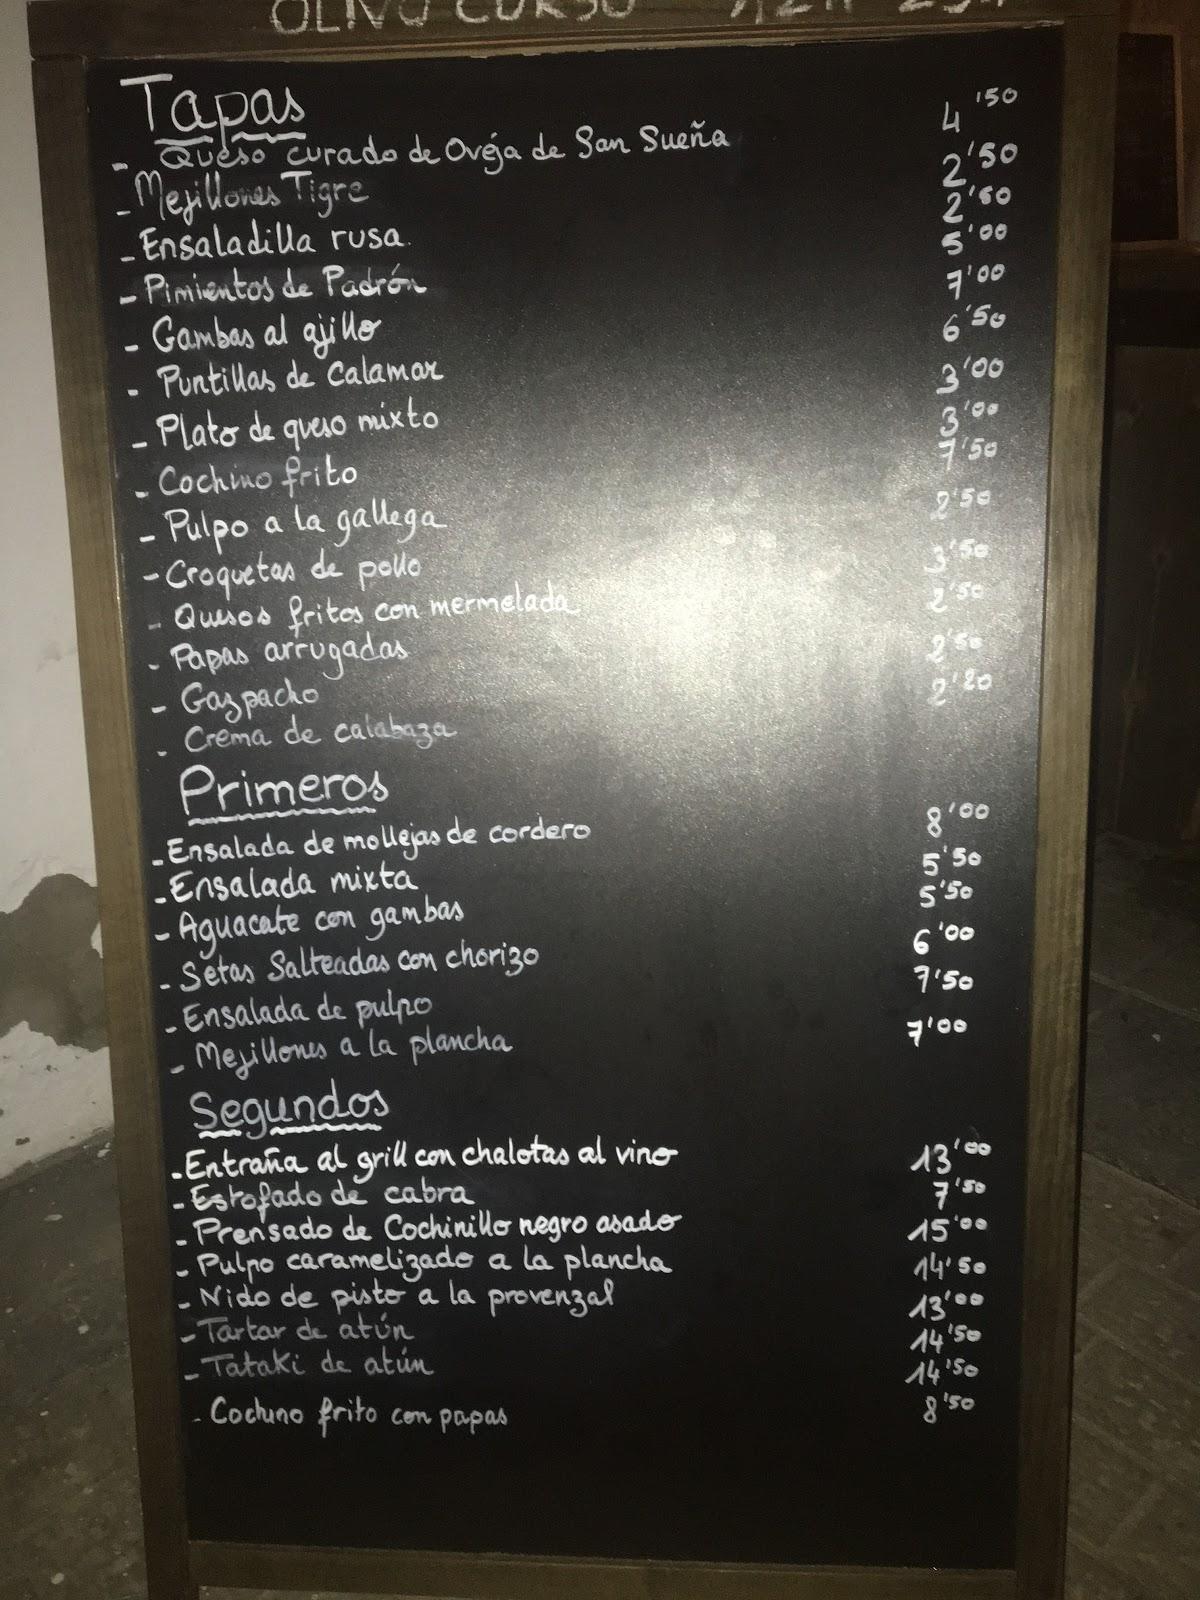 OLIVO CURSO
Tapas
- Queso curado de Ovéja de San Sueña 4'50
- Mejillones Tigre 2'50
- Ensaladilla rusa. 2'50
- Pimientos de Padrón 5'00
- Gambas al ajillo 7'00
- Puntillas de Calamar 6'50
- Plato de queso mixto 3'00
- Cochino frito 3'00
- Pulpo a la gallega 7'50
- Croquetas de pollo 2'50
- Quesos fritos con mermelada 3'50
- Papas arrugadas 2'50
- Gazpacho 2'50
- Crema de calabaza 2'20
Primeros
- Ensalada de mollejas de cordero 8'00
- Ensalada mixta 5'50
- Aguacate con gambas 5'50
- Setas Salteadas con chorizo 6'00
- Ensalada de pulpo 7'50
- Mejillones a la plancha 7'00
Segundos
- Entraña al grill con chalotas al vino 13'00
- Estofado de cabra 7'50
- Prensado de Cochinillo negro asado 15'00
- Pulpo caramelizado a la plancha 14'50
- Nido de pisto a la provenzal 13'00
- Tartar de atún 14'50
- Tataki de atún 14'50
- Cochino frito con papas 8'50